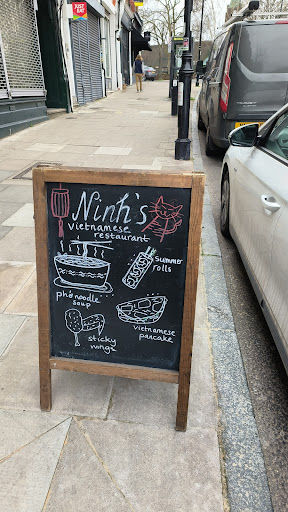 JUST
EAT
Ninh's
vietnamese
restaurant
summer
rolls
pho noodle
soup
vietnamese
pancake
sticky
wings